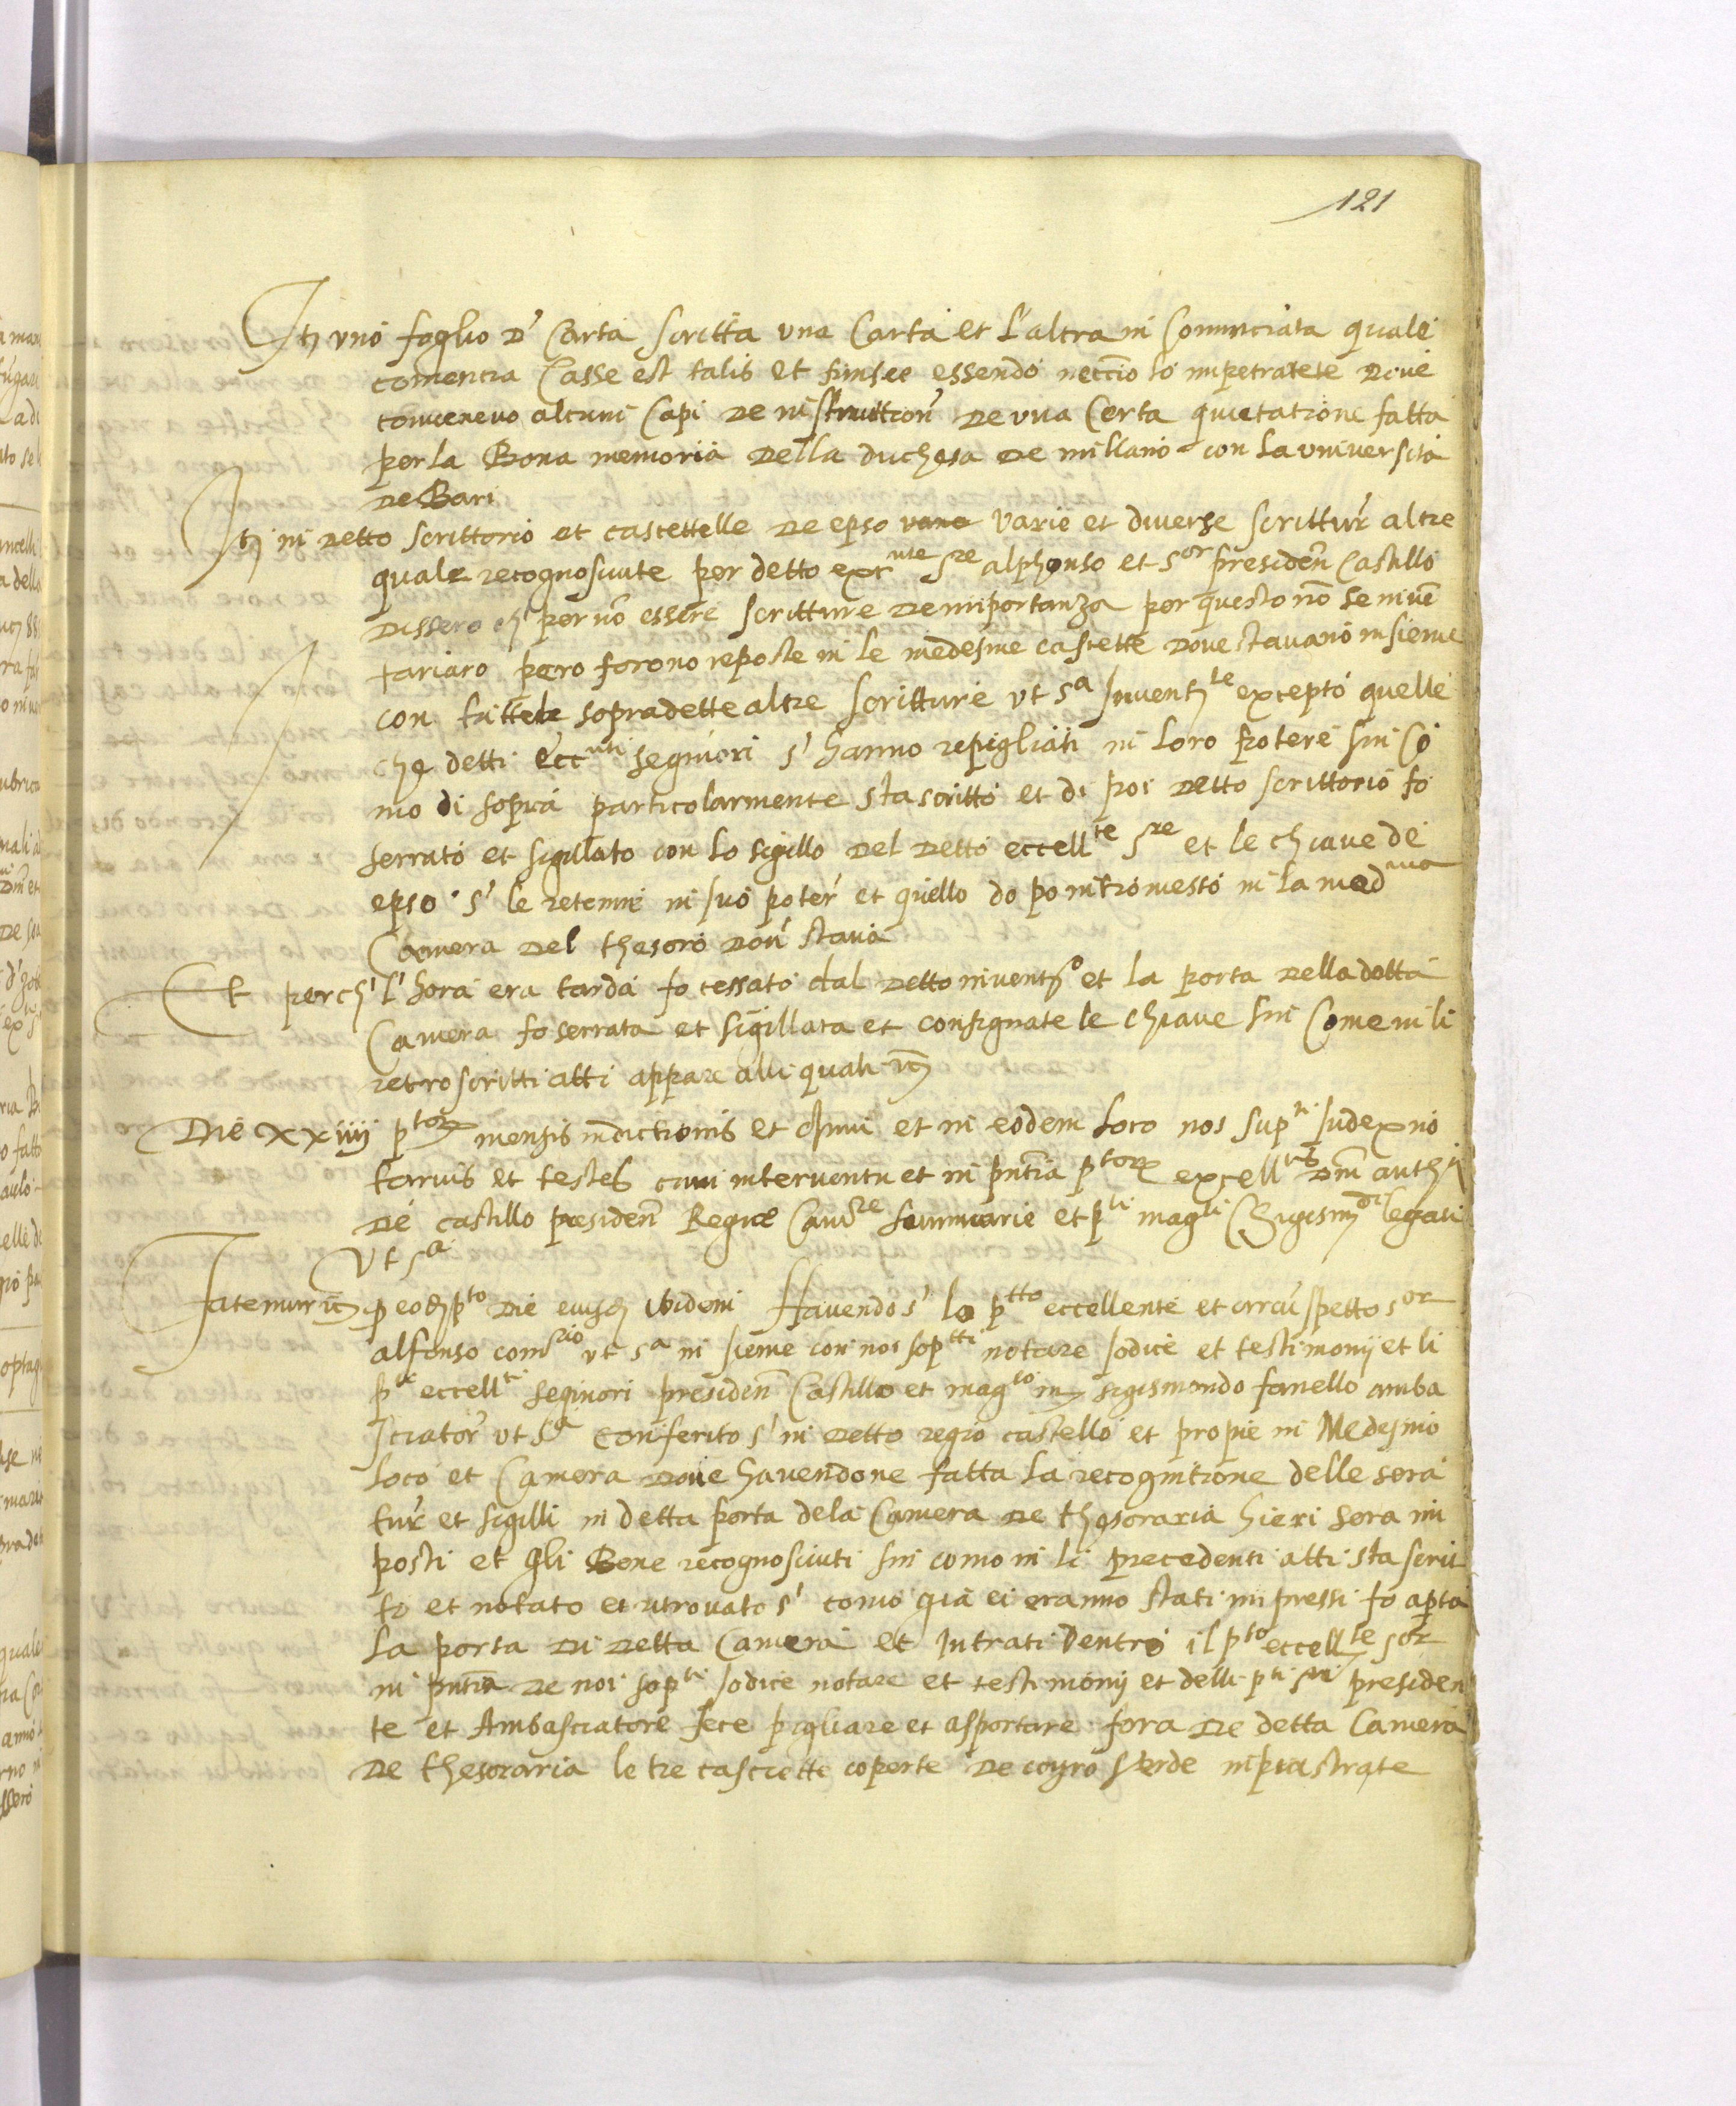 121
Itȝ uno foglio d' Carta scritta una Carta et l'altra in Comentiata quale
comencia Casse est talis et finisce essendo neccio lo impetratete dove
convenevo alcuni Capi de instruction' de una Certa quietatione fatta
per la Bona memoria della duchesa de millano con la università
de Bari
Itȝ in detto scrittorio et cascettelle de epso vano varie et diverse scrittur' altre
quale recognosciute per detto exc.nte S.re alphonso et s.or presiden castillo
dissero ch' per nō essere scritture de importanza per questo nō se inven
tariaro pero forono reposte in le medesme cascette dove stavano insieme
con tutte le sopradette altre scritture ut s.a Invent.te excepto quelle
che detti ecc.nti segniori s' hanno repigliati in loro potere sin Co
mo di sopra particolarmente sta scritto et di poi detto scrittorio fo
serrato et sigillato con lo sigillo del detto eccell.te S.re et le chiave de
epso s' le retenne in suo poter' et quello do po intromesto in la med.ma
Camera del thesoro dov' stava
Et perch' l'hora era tarda fo cessato dal detto invent.o et la porta della detta
Camera fo serrata et sigillata et consignate le chiave sin Come in li
retroscritti atti appare alli quali etc
Die xxiiij p.tor mensis indictionis et Anni et in eodem loco nos sup.ti Judex no
tarius et testes cum interventu et in pntia p.tor excell.tis Dni anth
de castillo presiden Regiae Cam.re summarie et p.ti mag.ci Sigism.di legati
Ut s.a
Fatemur etc p eodȝ p.to die eiusdȝ ibidem Havendo s' lo p.tto eccellente et circuspetto s.or
alfonso com.rio ut s.a in sieme con noi sop.tti notare Iodice et testimonij et li
p.ti eccell.ti seginori presiden Castillo et mag.co m sigismondo fanello amba
sciator' ut s.a conferito s' in detto regio castello et propie in Medesmo
loco et Camera dove havendone fatta la recognitione delle sera
tur' et sigilli in detta porta dela Camera de thesoraria hieri sera im
posti et qli Bene recognosciuti sin como in li precedenti atti sta scrit
to et notato et ritrovato s' como già ei eranno stati impressi fo aperta
la porta di detta Camera et Intrati dentro il p.to eccell.te s.or
in pntia de noi sop.ti Iodice notare et testimonij et delli p.ti s.ri presiden
te et Ambasciatore fece pigliare et asportare fora de detta Camera
de thesoraria le tre casciette coperte de coyro verde inpiastrate